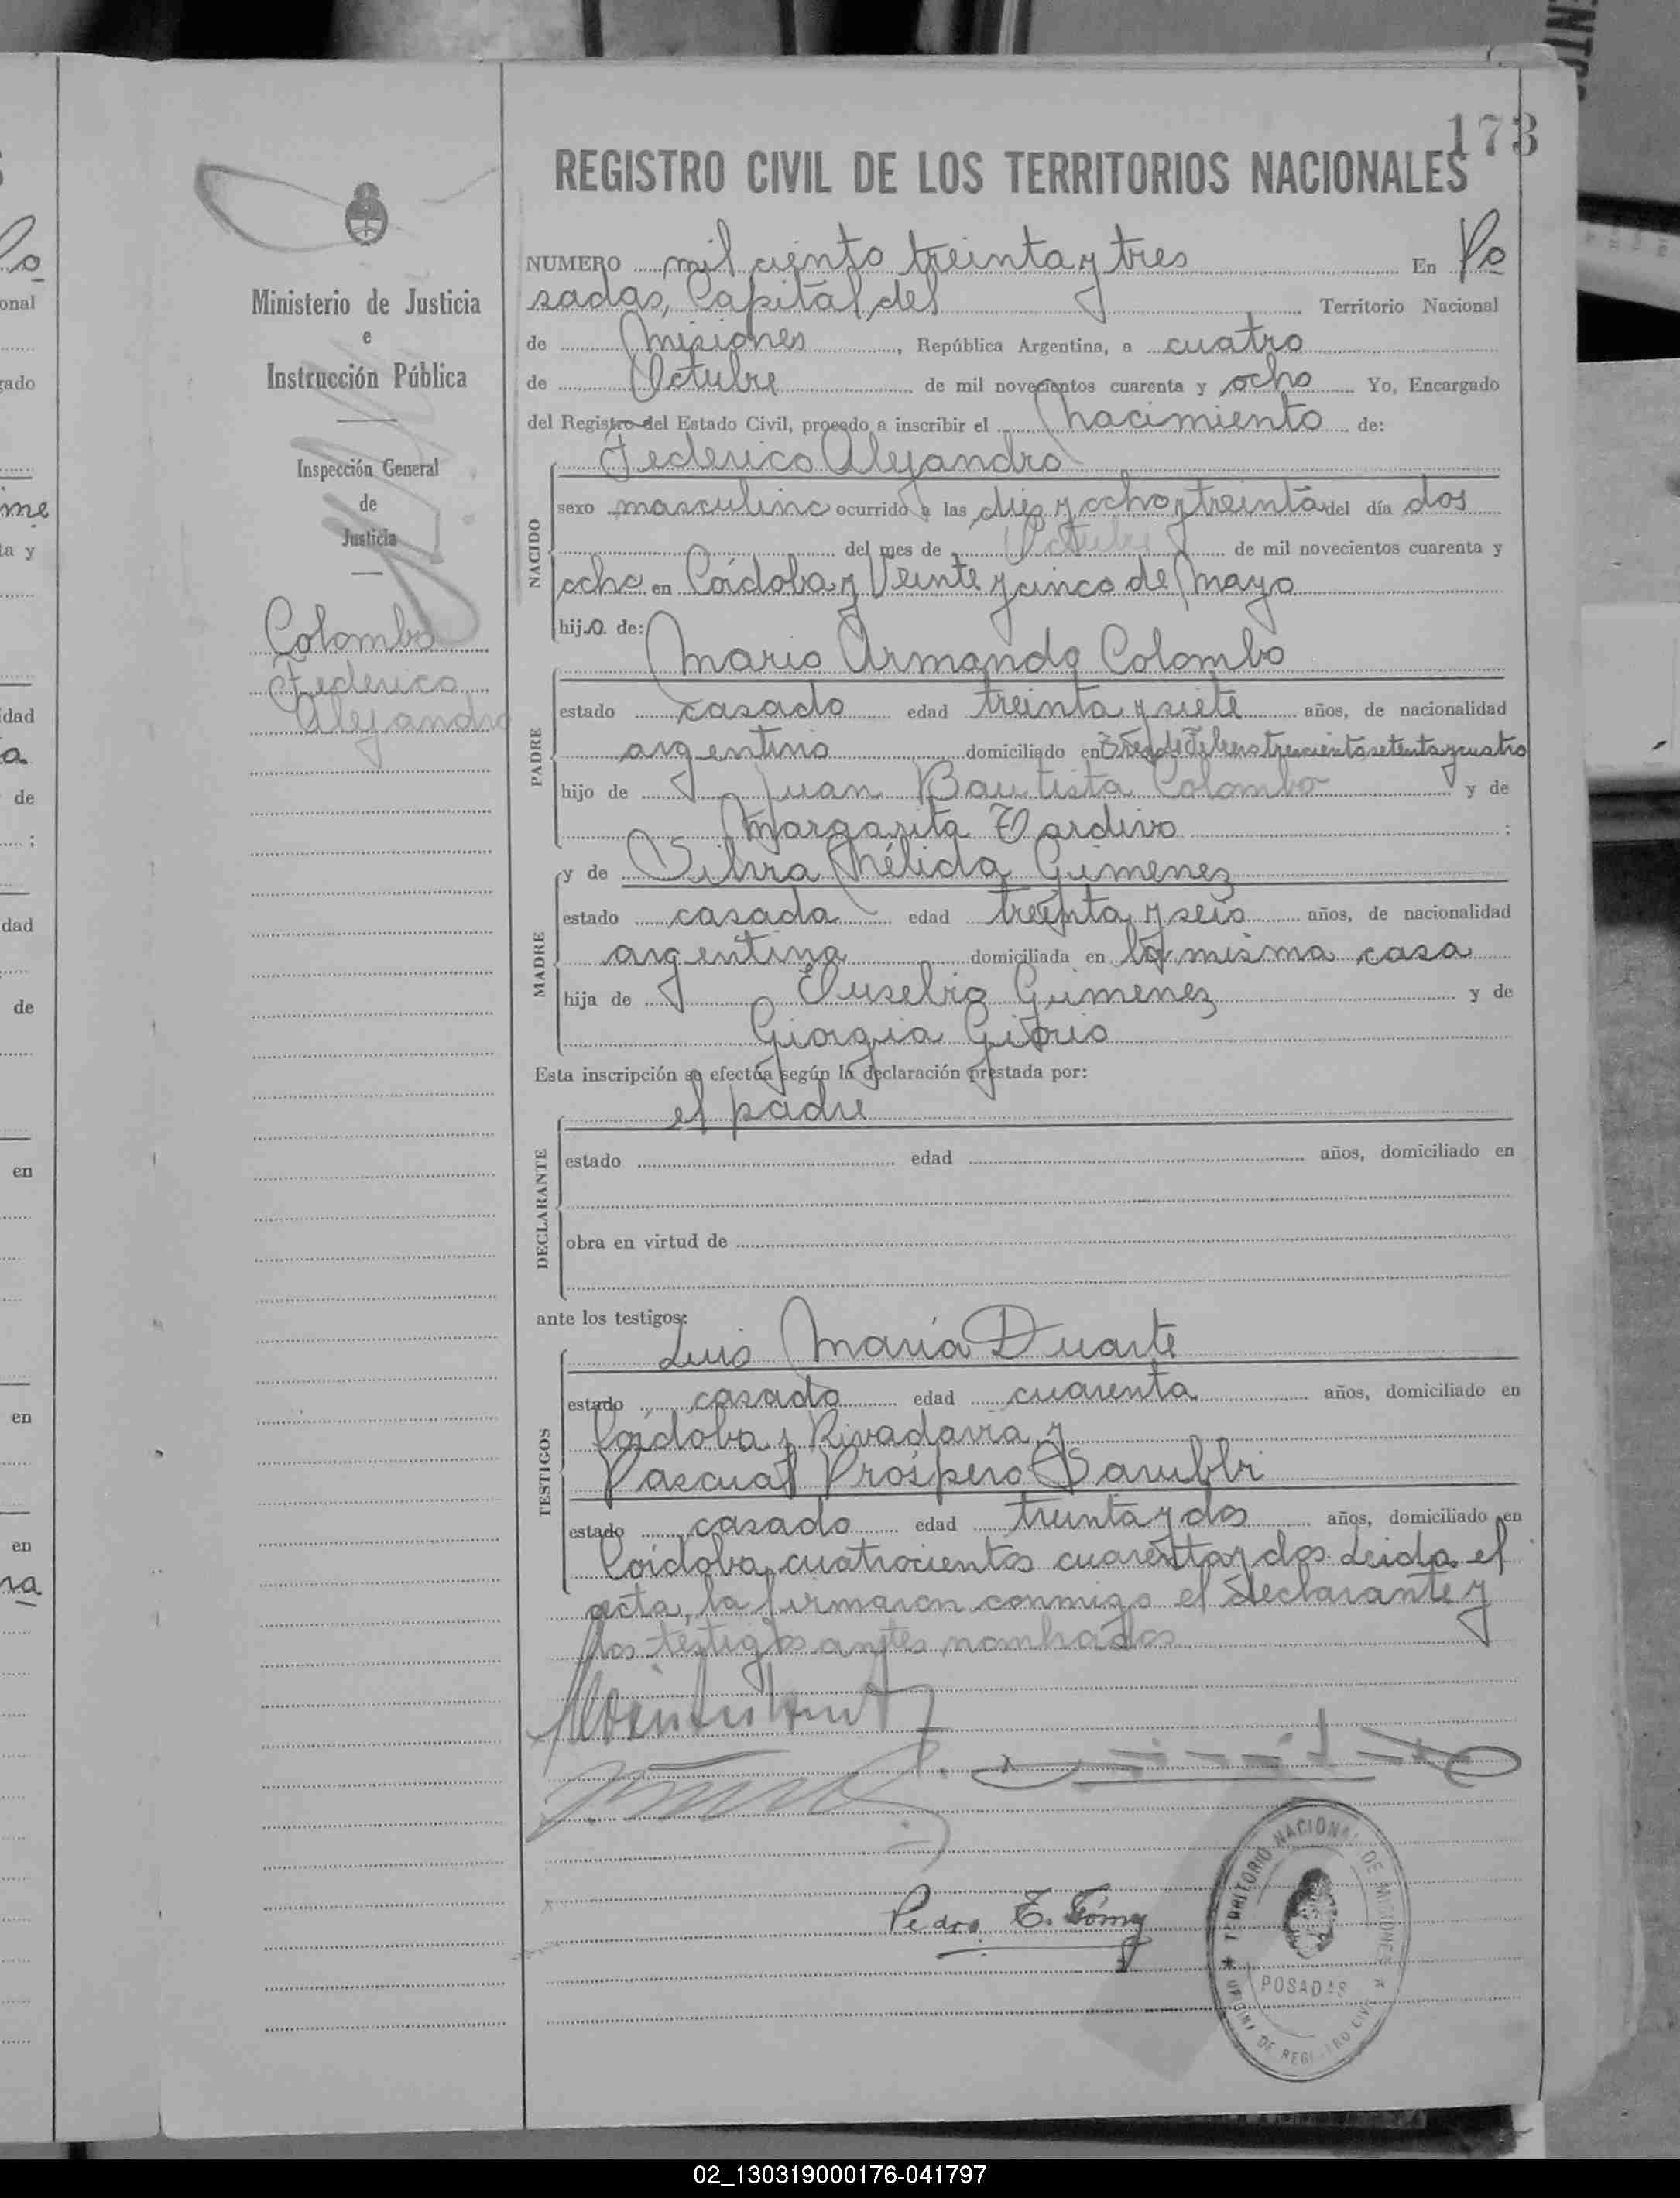 173
REGISTRO CIVIL DE LOS TERRITORIOS NACIONALES
Ministerio de Justicia
e
Instrucción Pública
Inspección General
de
Justicia
Colombo
Federico
Alejandro
NUMERO mil ciento treinta y tres En Po
sadas, Capital del Territorio Nacional
de Misiones, República Argentina, a cuatro
de Octubre de mil novecientos cuarenta y ocho Yo, Encargado
del Registro del Estado Civil, procedo a inscribir el nacimiento de:
NACIDO
Federico Alejandro
sexo masculino ocurrido a las diez y ocho y treinta del día dos
del mes de Octubre de mil novecientos cuarenta y
ocho en Córdoba y Veinte y cinco de Mayo
hijo de:
PADRE
Mario Armando Colombo
estado casado edad treinta y siete años, de nacionalidad
argentino domiciliado en trescientos setenta y cuatro
hijo de Juan Bautista Colombo y de
Margarita Tardivo ;
MADRE
y de Silvia Nélida Gimenez
estado casada edad treinta y seis años, de nacionalidad
argentina domiciliada en la misma casa
hija de Eusebio Gimenez y de
Giorgia
Esta inscripción se efectúa según la declaración prestada por:
DECLARANTE
el padre
estado edad años, domiciliado en
obra en virtud de
ante los testigos:
TESTIGOS
Luis María Duarte
estado casado edad cuarenta años, domiciliado en
Córdoba y Rivadavia y
Pascual Próspero
estado casado edad treinta y dos años, domiciliado en
Córdoba cuatrocientos cuarenta y dos Leida el
acta, la firmaron conmigo el declarante y
los testigos antes nombrados
Pedro E. Gómez
TERRITORIO NACIONAL DE MISIONES
POSADAS
OFICINA DE REGISTRO CIVIL
02_130319000176-041797